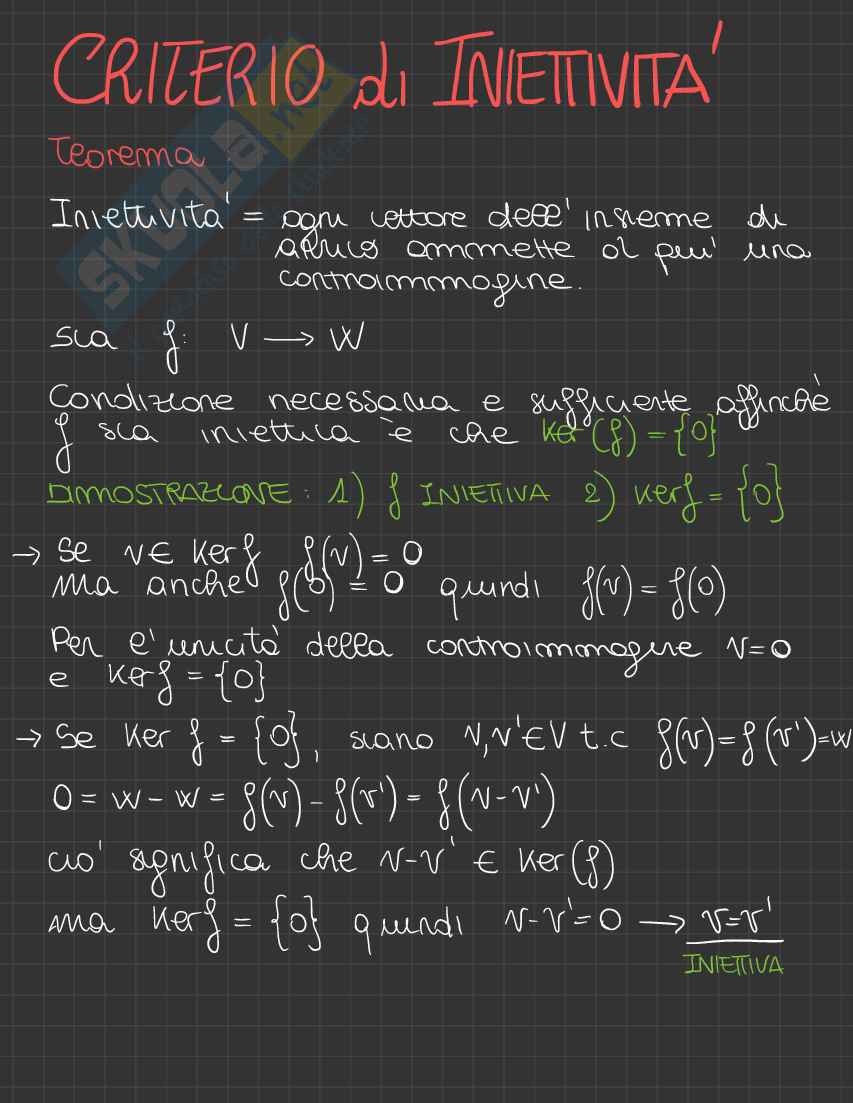 CRITERIO di INIETTIVITA'
Teorema :
Iniettivita' = ogni vettore dell'insieme di
arrivo ammette al piu' una
controimmagine.
sia f: V → W
Condizione necessaria e sufficiente affinchè
f sia iniettiva è che ker(f) = {0}
DIMOSTRAZIONE : 1) f INIETTIVA 2) kerf = {0}
→ Se v ∈ Kerf f(v) = 0
ma anche f(0) = 0 quindi f(v) = f(0)
Per l'unicità della controimmagine v=0
e kerf = {0}
→ Se Ker f = {0}, siano v,v' ∈ V t.c f(v) = f(v') = w
0 = w - w = f(v) - f(v') = f(v-v')
cio' significa che v-v' ∈ Ker(f)
ma kerf = {0} quindi v-v'=0 → v=v'
INIETTIVA
SKUOLA.net